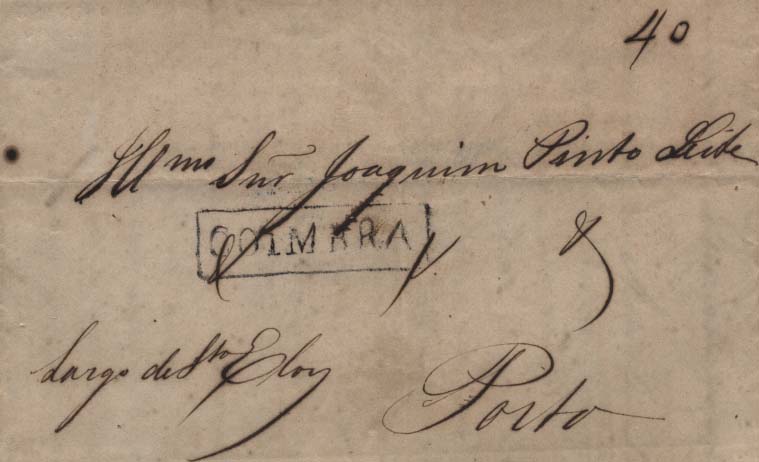 40
Illmo Snr̃ Joaquim Pinto Leite
COIMBRA
Largo de Sto Eloy
Porto